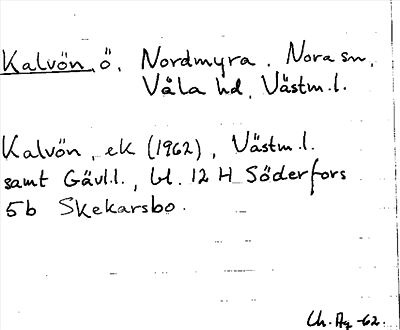 Kalvön, ö, Nordmyra. Nora sn,
Våla hd, Västm.l.
Kalvön, ek (1962), Västm.l.
samt Gävl.l., bl. 12 H Söderfors
5b Skekarsbo.
Ch. Ag -62.